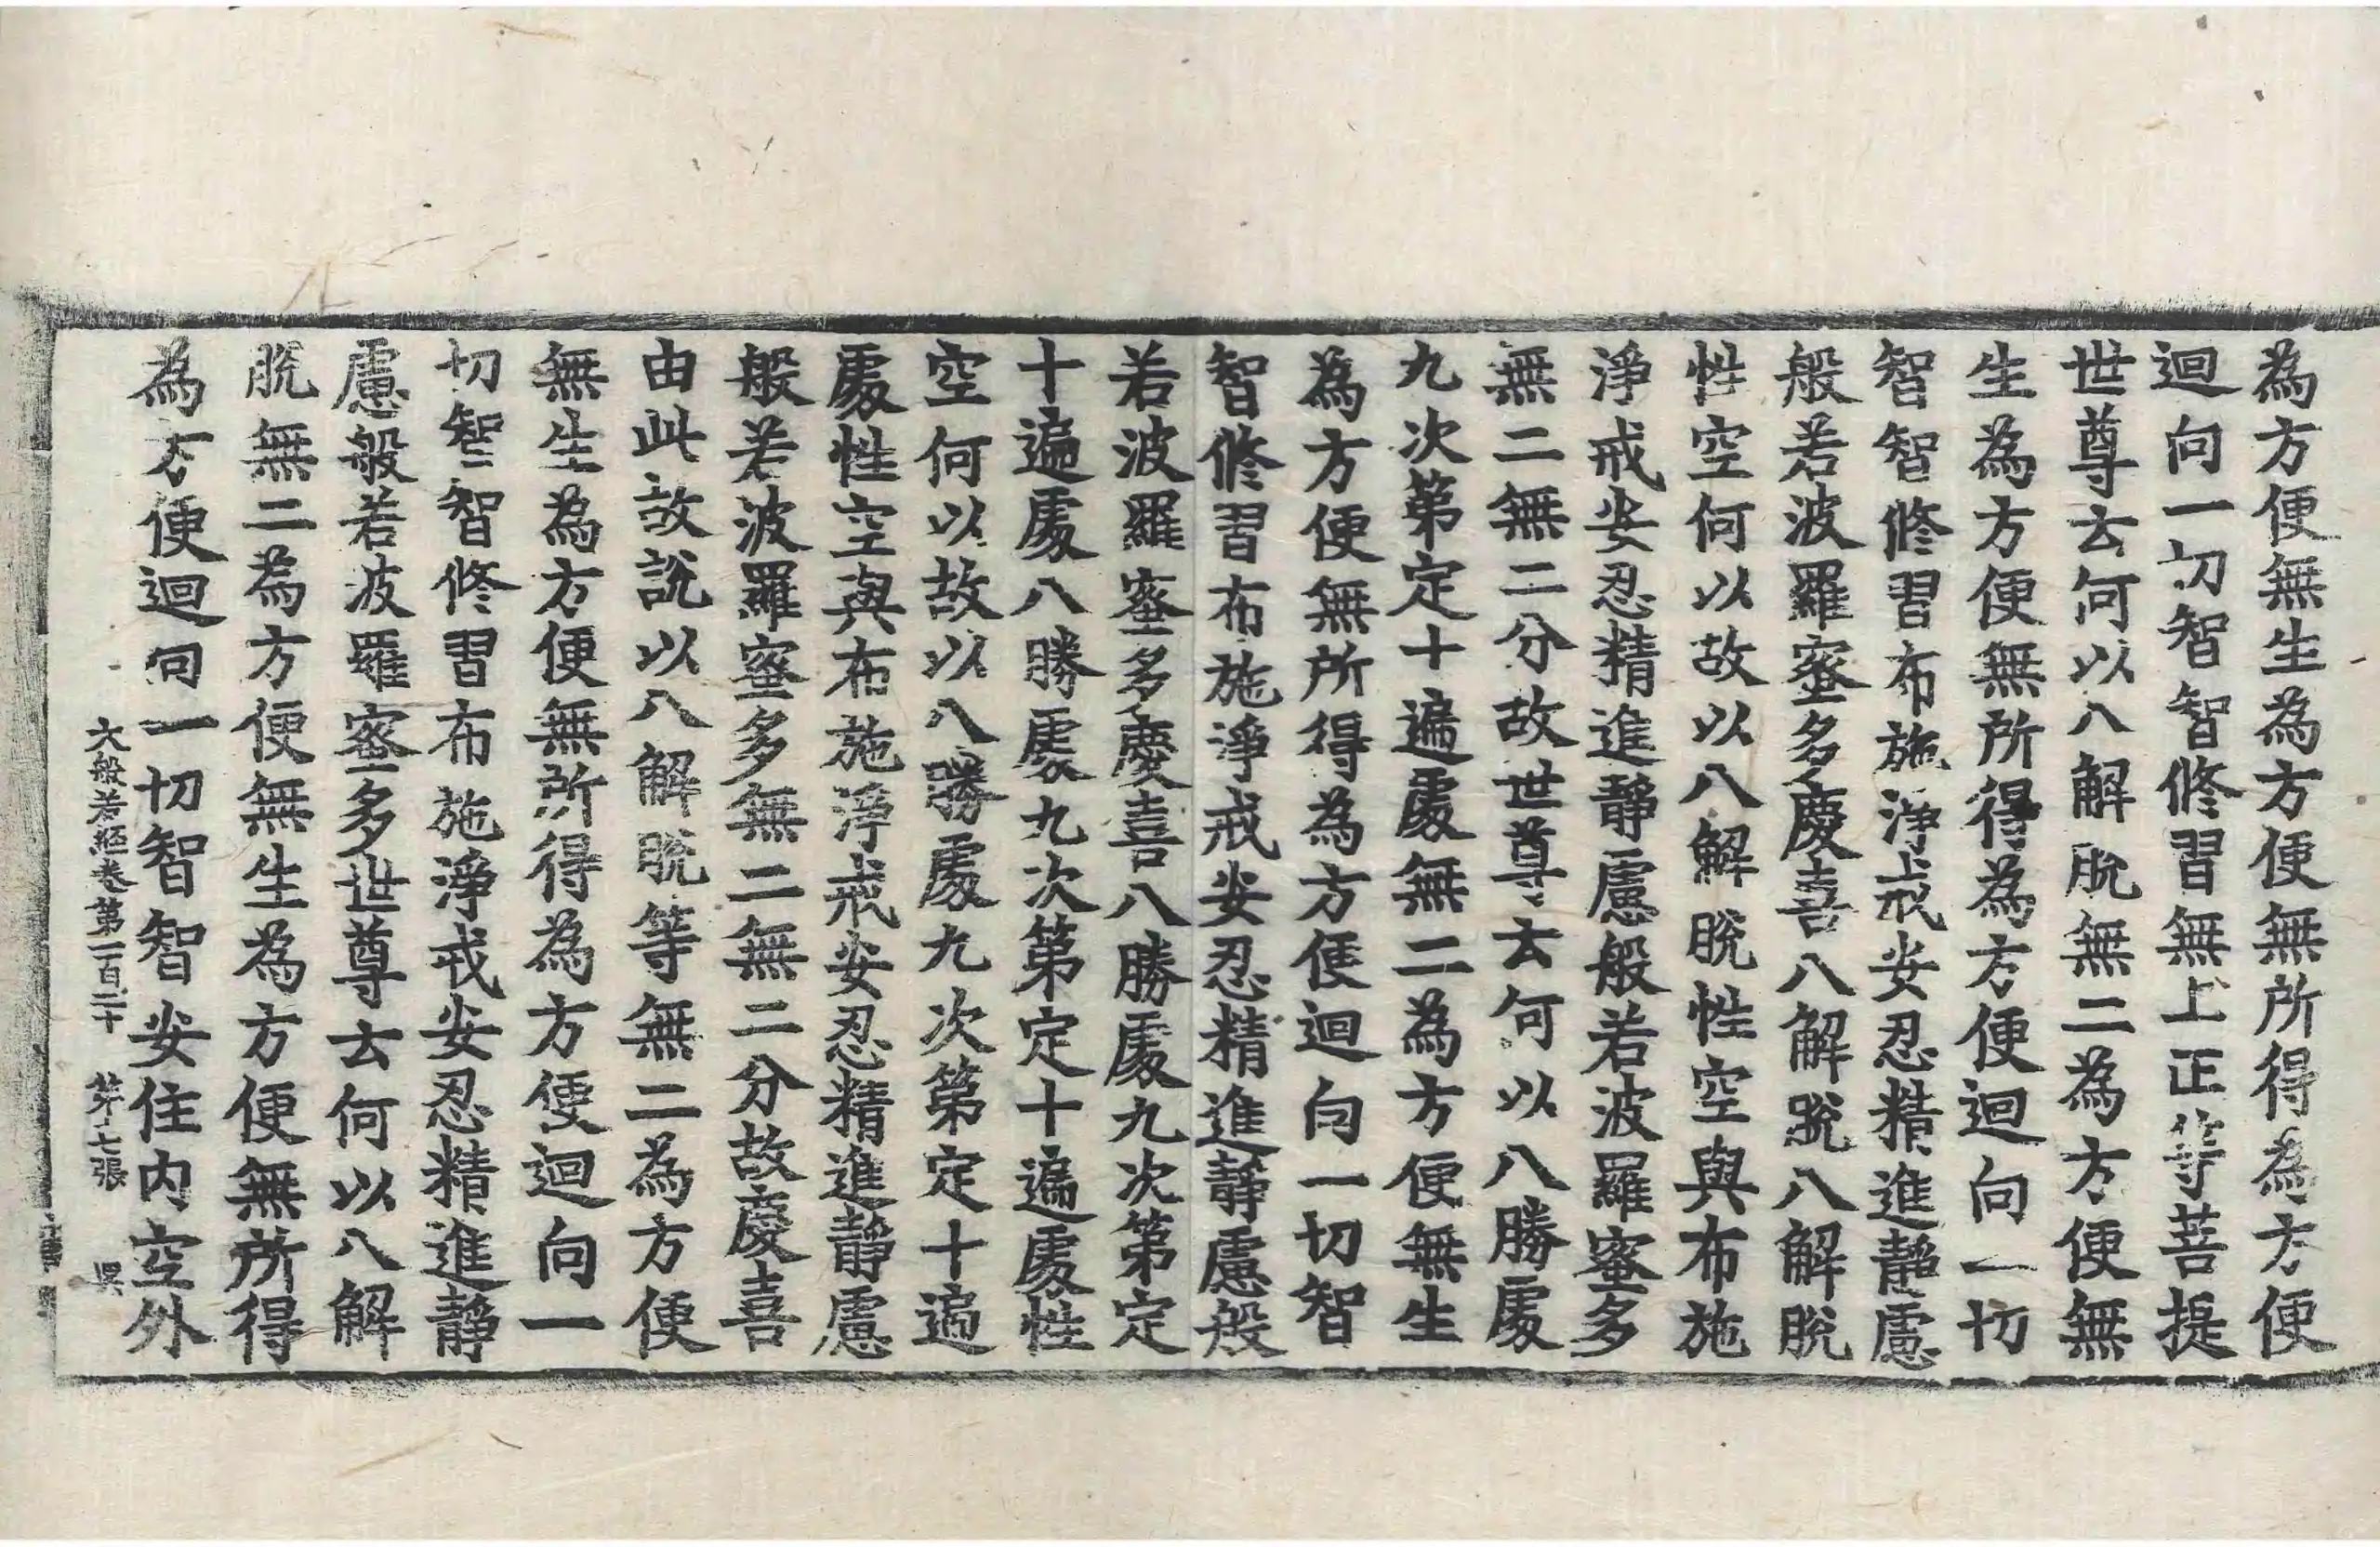 為方便無生為方便無所得為方便
迴向一切智智修習無上正等菩提
世尊云何以八解脫無二為方便無
生為方便無所得為方便迴向一切
智智修習布施淨戒安忍精進靜慮
般若波羅蜜多慶喜八解脫八解脫
性空何以故以八解脫性空與布施
淨戒安忍精進靜慮般若波羅蜜多
無二無二分故世尊云何以八勝處
九次第定十遍處無二為方便無生
為方便無所得為方便迴向一切智
智修習布施淨戒安忍精進靜慮般
若波羅蜜多慶喜八勝處九次第定
十遍處八勝處九次第定十遍處性
空何以故以八勝處九次第定十遍
處性空與布施淨戒安忍精進靜慮
般若波羅蜜多無二無二分故慶喜
由此故說以八解脫等無二為方便
無生為方便無所得為方便迴向一
切智智修習布施淨戒安忍精進靜
慮般若波羅蜜多世尊云何以八解
脫無二為方便無生為方便無所得
為方便迴向一切智智安住內空外
大般若經卷第一百二十 第七張